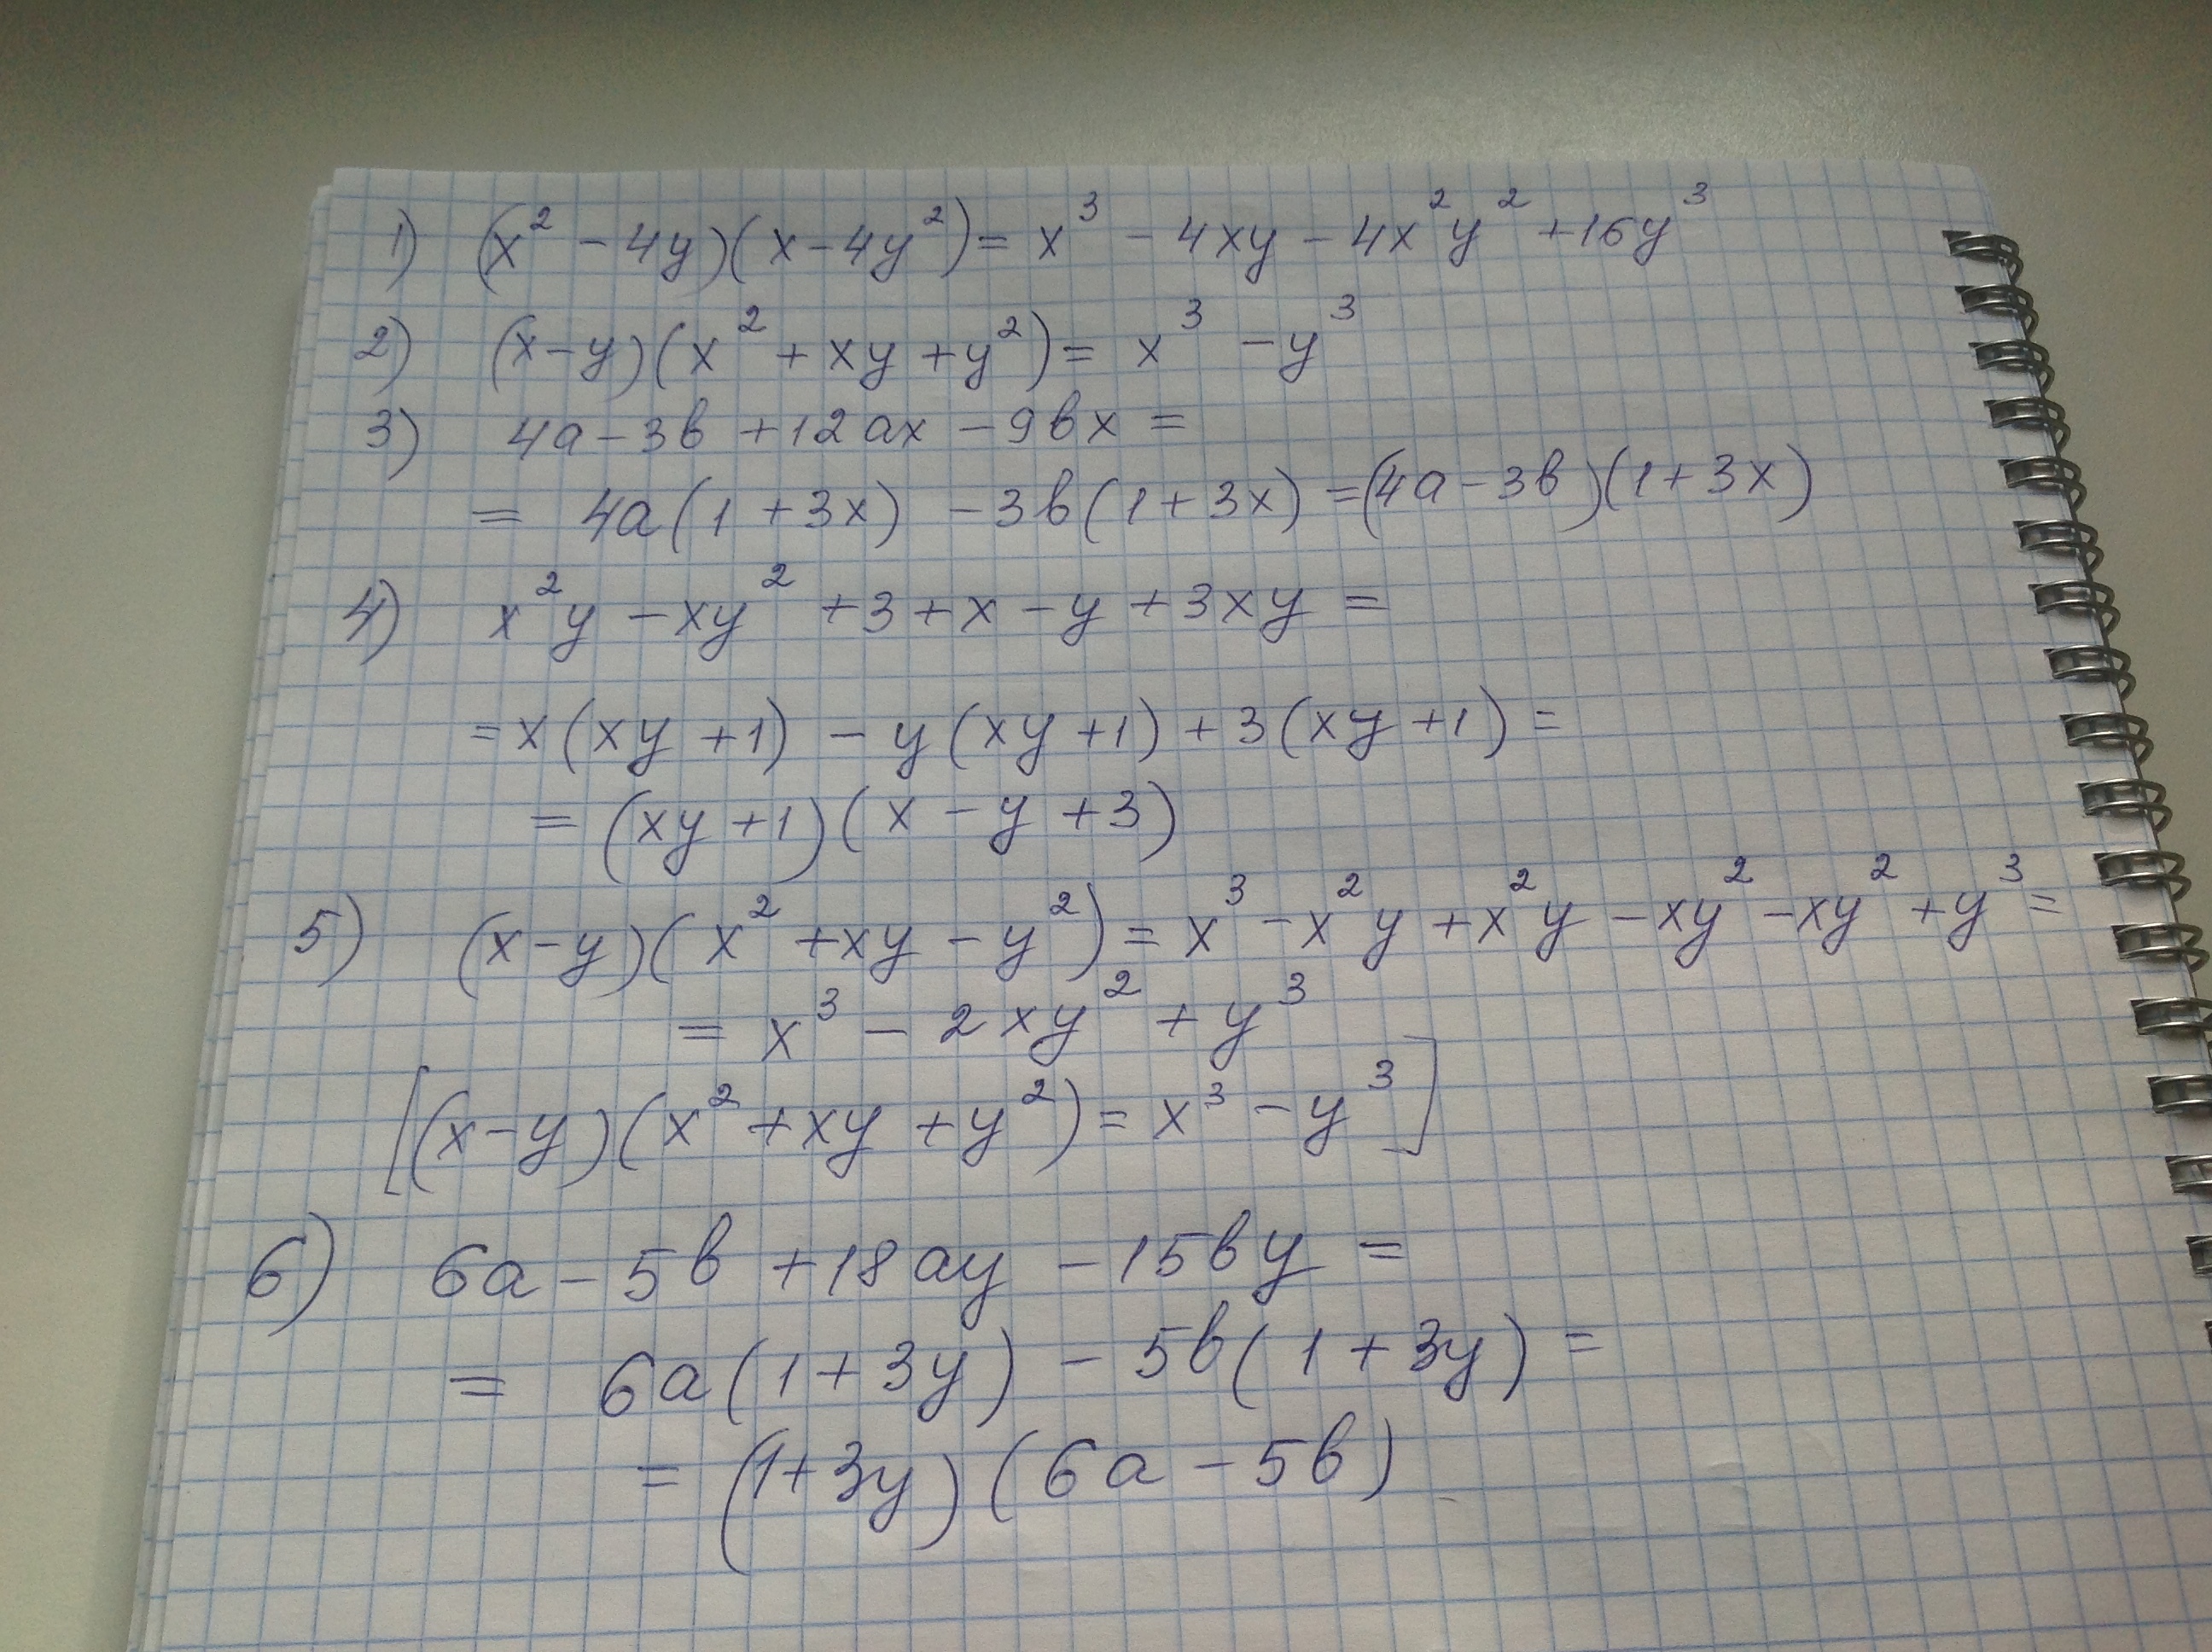 1) (x² - 4y)(x - 4y²) = x³ - 4xy - 4x²y² + 16y³
2) (x - y)(x² + xy + y²) = x³ - y³
3) 4a - 3b + 12ax - 9bx =
= 4a(1 + 3x) - 3b(1 + 3x) = (4a - 3b)(1 + 3x)
4) x²y - xy² + 3 + x - y + 3xy =
= x(xy + 1) - y(xy + 1) + 3(xy + 1) =
= (xy + 1)(x - y + 3)
5) (x - y)(x² + xy - y²) = x³ - x²y + x²y - xy² - xy² + y³ =
= x³ - 2xy² + y³
[(x - y)(x² + xy + y²) = x³ - y³]
6) 6a - 5b + 18ay - 15by =
= 6a(1 + 3y) - 5b(1 + 3y) =
= (1 + 3y)(6a - 5b)